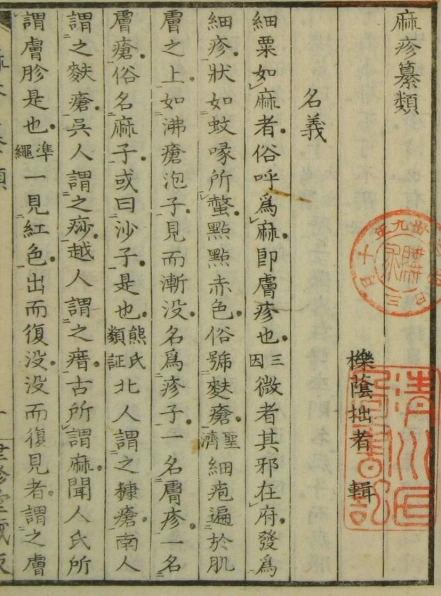 麻疹纂類
櫟蔭拙者 輯
名義
細粟如麻者俗呼爲麻即膚疹也三因微者其邪在府發爲
細疹狀如蚊喙所螫點點赤色俗號麩瘡聖濟細疱遍於肌
膚之上如沸瘡泡子見而漸没名爲疹子一名膚疹一名
膚瘡俗名麻子或曰沙子是也熊氏類証北人謂之糠瘡南人
謂之麩瘡吳人謂之痧越人謂之瘄古所謂麻聞人氏所
謂膚胗是也準繩一見紅色出而復没没而復見者謂之膚